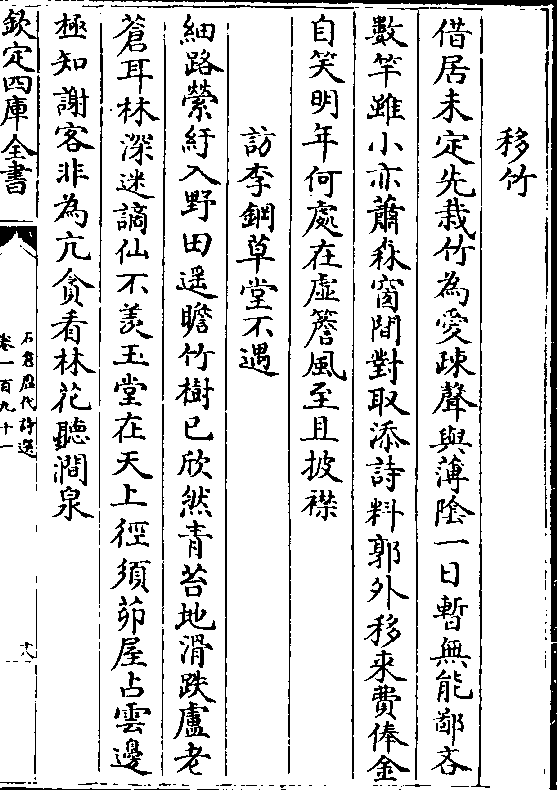 移竹
借居未定先栽竹為愛疎聲與薄陰一日暫無能鄙吝
數竿雖小亦蕭森窗間對取添詩料郭外移來費俸金
自笑明年何處在虛簷風至且披襟
訪李鋼草堂不遇
細路縈紆入野田遥瞻竹樹已欣然青苔地滑跌盧老
蒼耳林深迷謫仙不羡玉堂在天上徑須茆屋占雲邊
極知謝客非為亢貪看林花聽澗泉
欽定四庫全書
石倉歷代詩選
卷一百九十一